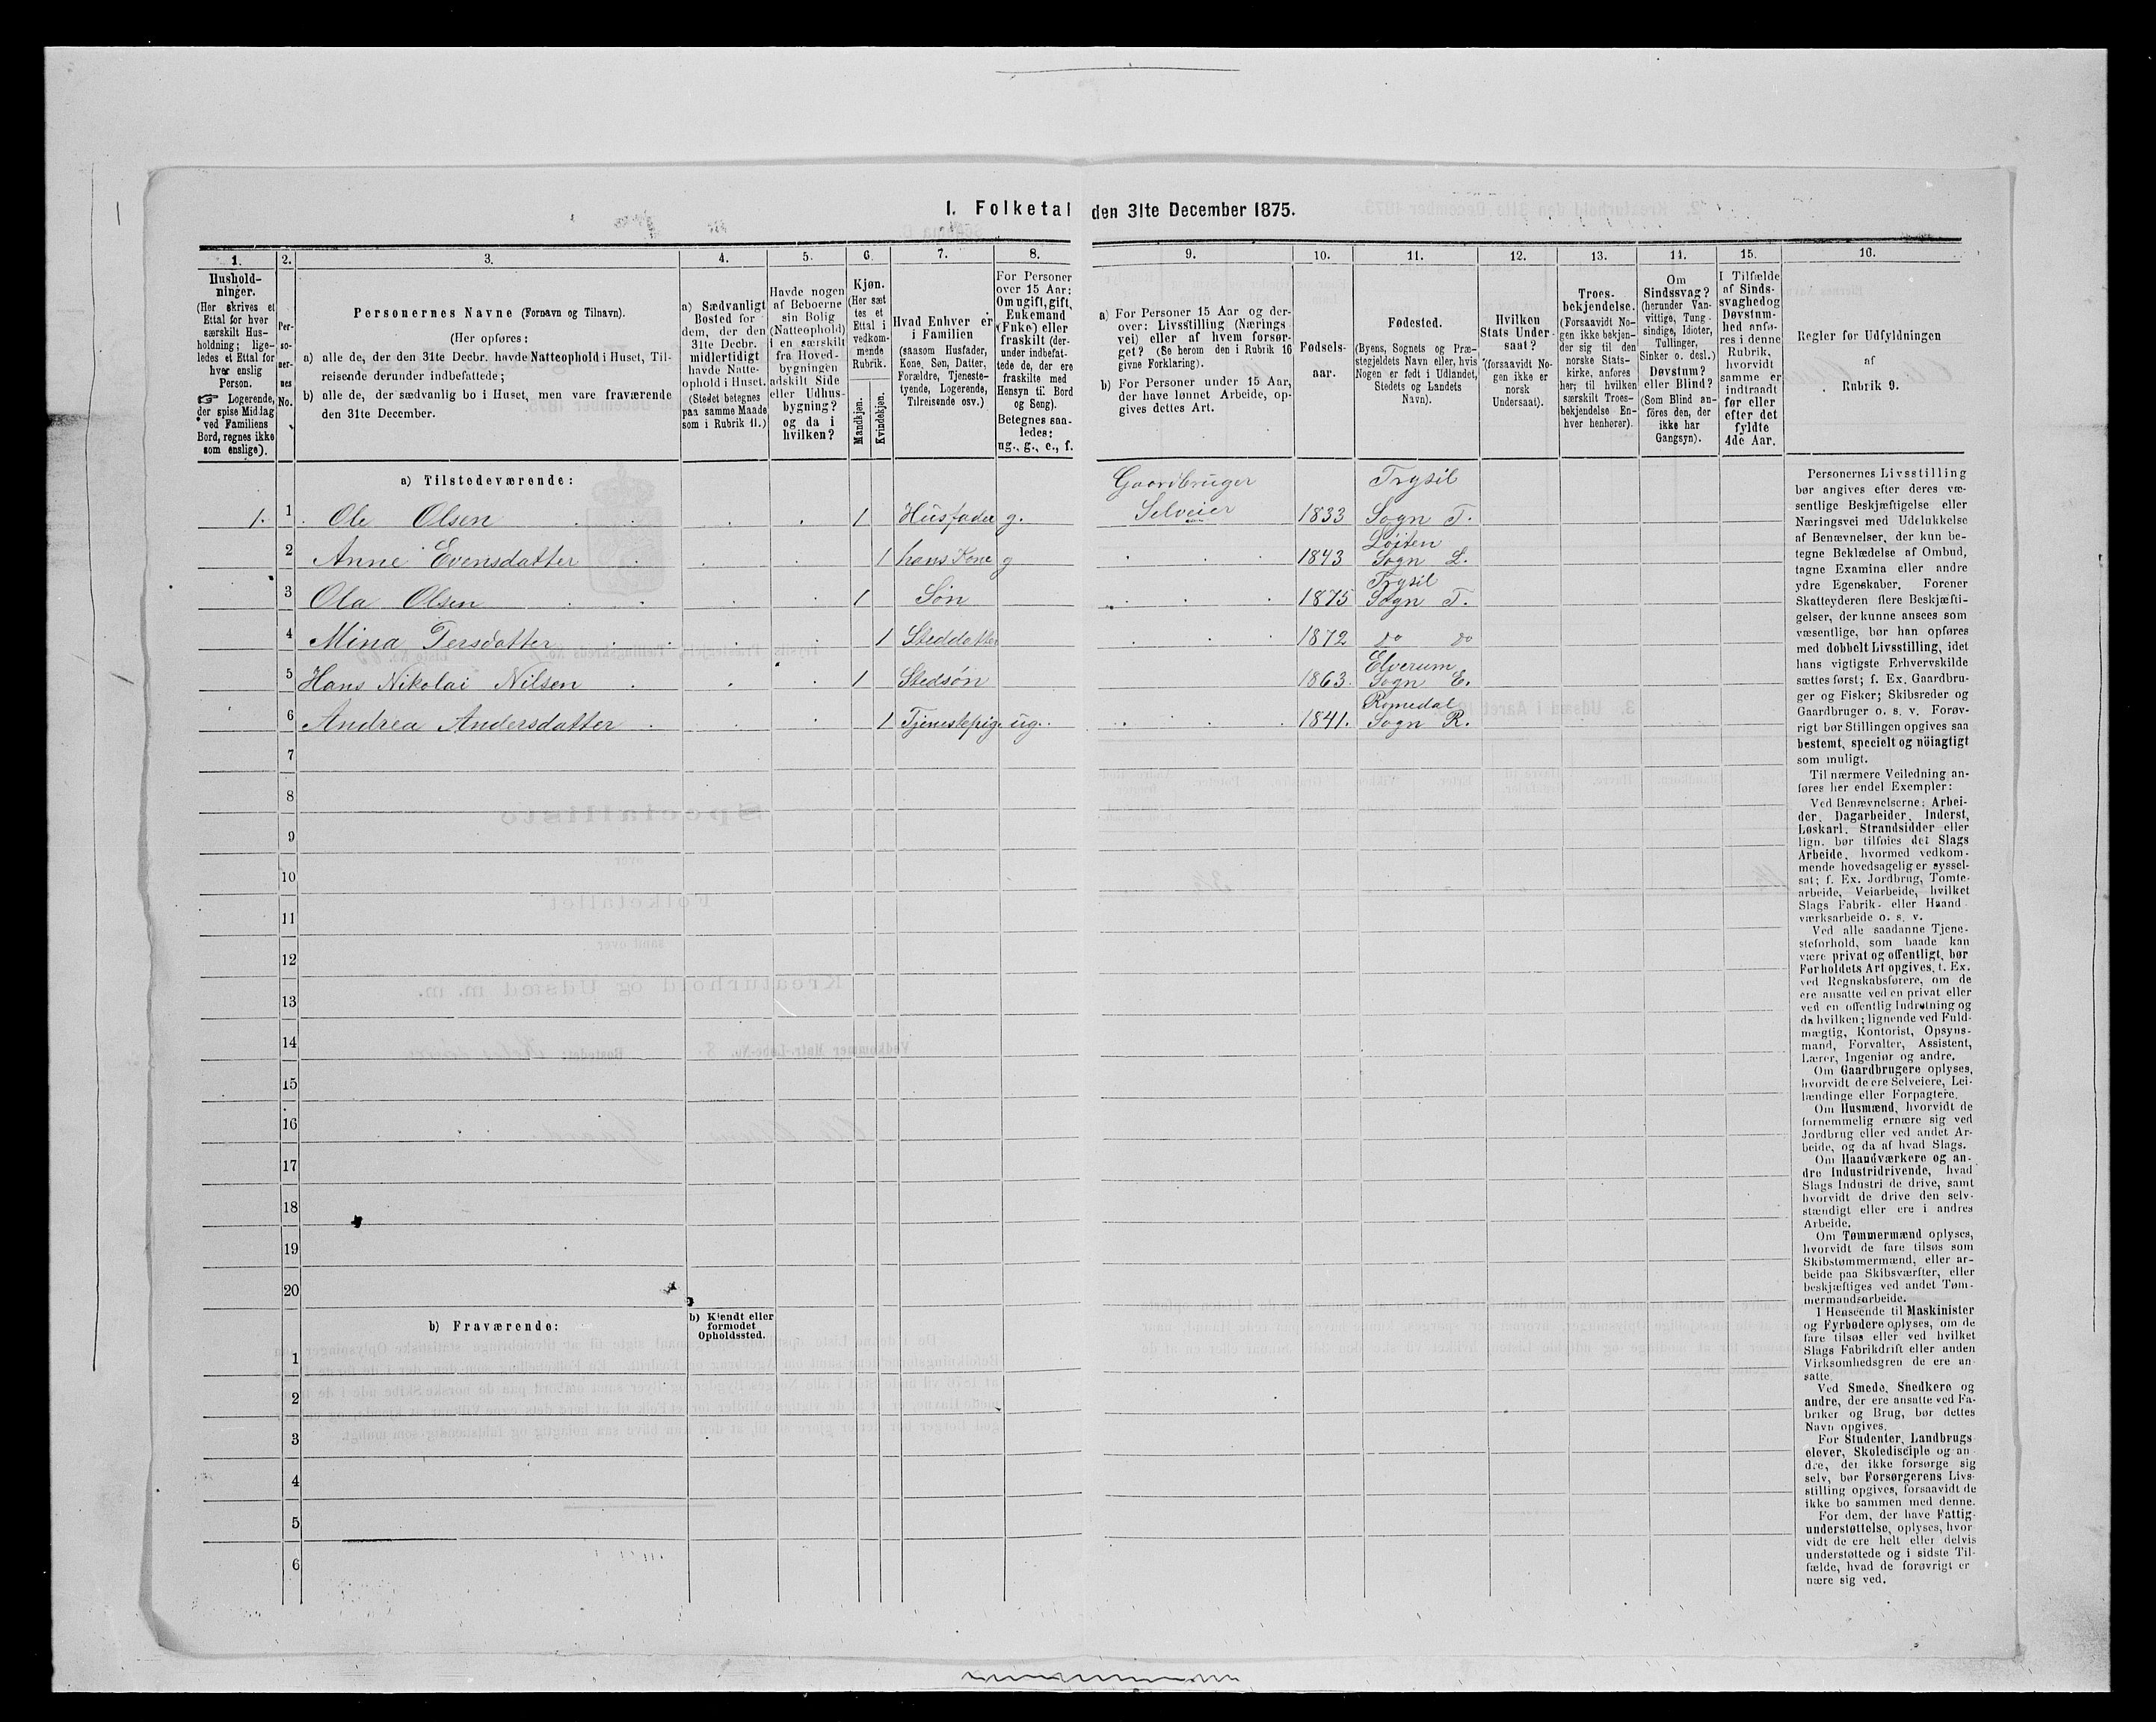 I. Folketal den 31te December 1875.
1.
Hushold-
ninger.
(Her skrives et
Ettal for hver
særskilt Hus-
holdning; lige-
ledes et Ettal for
hver enslig
Person.
☞ Logerende,
der spise Middag
ved Familiens
Bord, regnes ikke
som enslige).
2.
Per-
so-
ner-
nes
No.
3.
Personernes Navne (Fornavn og Tilnavn).
(Her opføres:
a) alle de, der den 31te Decbr. havde Natteophold i Huset, Til-
reisende derunder indbefattede;
b) alle de, der sædvanlig bo i Huset, men vare fraværende
den 31te December.
4.
a) Sædvanligt
Bosted for
dem, der den
31te Decbr.
midlertidigt
havde Natte-
ophold i Huset.
(Stedet betegnes
paa samme Maade
som i Rubrik 11.)
5.
Havde nogen
af Beboerne
sin Bolig
(Natteophold)
i en særskilt
fra Hoved-
bygningen
adskilt Side
eller Udhus-
bygning?
og da i
hvilken?
6.
Kjøn.
(Her sæt
tes et
Ettal i
vedkom-
mende
Rubrik.
Mandkjøn.
Kvindekjøn.
7.
Hvad Enhver er
i Familien
(saasom Husfader,
Kone, Søn, Datter,
Forældre, Tjeneste-
tyende, Logerende,
Tilreisende osv.)
8.
For Personer
over 15 Aar:
Om ugift, gift,
Enkemand
(Enke) eller
fraskilt (der-
under indbefat-
tede de, der ere
fraskilte med
Hensyn til Bord
og Seng).
Betegnes saa-
ledes:
ug., g., e., f.
9.
a) For Personer 15 Aar og der-
over: Livsstilling (Nærings
vei) eller af hvem forsør-
get? (Se herom den i Rubrik 16
givne Forklaring).
b) For Personer under 15 Aar,
der have lønnet Arbeide, op-
gives dettes Art.
10.
Fødsels-
aar.
11.
Fødested.
(Byens, Sognets og Præ-
stegjeldets Navn eller, hvis
Nogen er født i Udlandet,
Stedets og Landets
Navn).
12.
Hvilken
Stats Under-
saat?
(forsaavidt No-
gen ikke er
norsk
Undersaat).
13.
Troes-
bekjendelse.
(Forsaavidt No-
gen ikke bekjen-
der sig til den
norske Stats-
kirke, anføres
her; til hvilken
særskilt Troes-
bekjendelse En-
hver henhører).
14.
Om
Sindssvag?
(herunder Van-
vittige, Tung
sindige, Idioter,
Tullinger,
Sinker o. desl.)
Døvstum?
eller Blind?
(Som Blind an-
føres den, der
ikke har
Gangsyn).
15.
I Tilfælde
af Sinds-
svaghed og
Døvstum-
hed anfø-
res i denne
Rubrik,
hvorvidt
samme er
indtraadt
før eller
efter det
fyldte
4de Aar.
16.
Regler for Udfyldningen
af
Rubrik 9.
a) Tilstedeværende:
Gaardbruger Trysil
1. 1 Ole Olsen 1 Husfader g. Selveier 1833 Sogn T.
Løiten
2 Anne Evensdatter 1 hans Kone g 1843 Sogn L.
Trysil
3 Ola Olsen 1 Søn 1875 Sogn T.
4 Mina Persdatter 1 Steddatter 1872 do do
Elverum
5 Hans Nikolai Nilsen 1 Stedsøn 1863 Sogn E.
Romedal
6 Andrea Andersdatter 1 Tjenestepig. ug. 1841. Sogn R.
7
8
9
10
11
12
13
14
15
16
17
18
19
20
b) Fraværende:
b) Kjendt eller
formodet
Opholdssted.
1
2
3
4
5
6
Personernes Livsstilling
bør angives efter deres væ-
sentlige Beskjæftigelse eller
Næringsvei med Udelukkelse
af Benævnelser, der kun be-
tegne Beklædelse af Ombud,
tagne Examina eller andre
ydre Egenskaber. Forener
Skatteyderen flere Beskjæfti-
gelser, der kunne ansees som
væsentlige, bør han opføres
med dobbelt Livsstilling, idet
hans vigtigste Erhvervskilde
sættes først; f. Ex. Gaardbru-
ger og Fisker; Skibsreder og
Gaardbruger o. s. v. Forøv-
rigt bør Stillingen opgives saa
bestemt, specielt og nöiagtigt
som muligt.
Til nærmere Veiledning an-
føres her endel Exempler:
Ved Benævnelserne: Arbei-
der, Dagarbeider, Inderst,
Løskarl, Strandsidder eller
lign. bør tilføies det Slags
Arbeide, hvormed vedkom-
mende hovedsagelig er syssel-
sat; f. Ex. Jordbrug, Tomte-
arbeide, Veiarbeide, hvilket
Slags Fabrik- eller Haand-
værksarbeide o. s. v.
Ved alle saadanne Tjene-
steforhold, som baade kan
være privat og offentligt, bør
Forholdets Art opgives, f. Ex.
ved Regnskabsførere, om de
ere ansatte ved en privat eller
ved en offentlig Indretning og
da hvilken; lignende ved Fuld-
mægtig, Kontorist, Opsyns-
mand, Forvalter, Assistent,
Lærer, Ingeniør og andre.
Om Gaardbrugere oplyses,
hvorvidt de ere Selveiere, Lei-
lændinge eller Forpagtere.
Om Husmænd, hvorvidt de
fornemmelig ernære sig ved
Jordbrug eller ved andet Ar-
beide, og da af hvad Slags.
Om Haandværkere og an-
dre Industridrivende, hvad
Slags Industri de drive, samt
hvorvidt de drive den selv-
stændigt eller ere i andres
Arbeide.
Om Tømmermænd oplyses,
hvorvidt de fare tilsøs som
Skibstømmermænd, eller ar-
beide paa Skibsværfter, eller
beskjæftiges ved andet Tøm-
mermandsarbeide.
I Henseende til Maskinister
og Fyrbødere oplyses, om de
fare tilsøs eller ved hvilket
Slags Fabrikdrift eller anden
Virksomhedsgren de ere an-
satte.
Ved Smede, Snedkere og
andre, der ere ansatte ved Fa-
briker og Brug, bør dettes
Navn opgives.
For Studenter, Landbrugs
elever, Skoledisciple og an-
dre, der ikke forsørge sig
selv, bør Forsørgerens Livs-
stilling opgives, forsaavidt de
ikke bo sammen med denne.
For dem, der have Fattig-
understøttelse, oplyses, hvor-
vidt de ere helt eller delvis
understøttede og i sidste Til-
fælde, hvad de forøvrigt er-
nære sig ved.